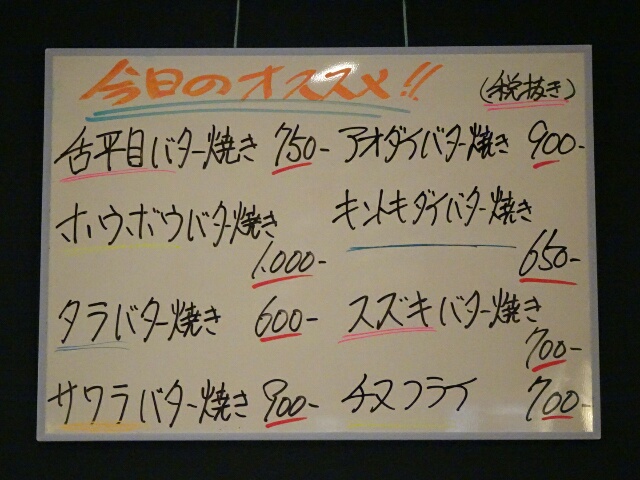 今日のオススメ!!
(税抜き)
舌平目バター焼き 750-
ホウボウバター焼き
1,000-
タラバター焼き 600-
サワラバター焼き 900-
アオダイバター焼き 900-
キントキダイバター焼き
650-
スズキバター焼き
700-
チヌフライ 700-